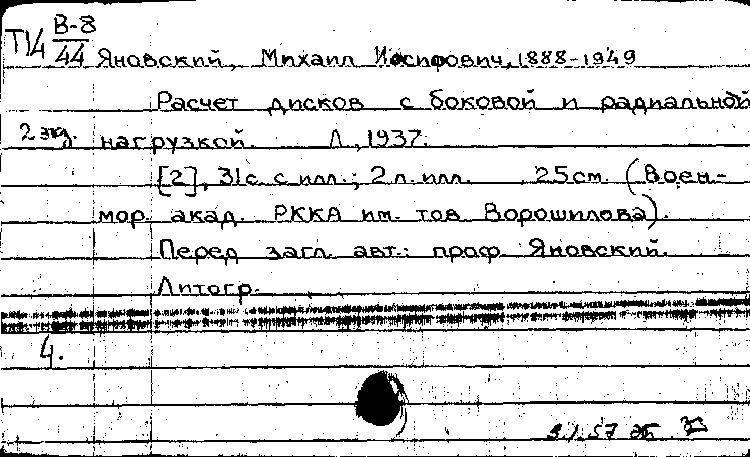 Т14 В-8
44 Яновский, Михаил Иосифович, 1888-1949
Расчет дисков с боковой и радиальной
2 экз. нагрузкой. Л., 1937.
[2], 31 с. с илл.; 2 л. илл. 25 см. (Воен-
мор. акад. РККА им. тов Ворошилова).
Перед загл. авт.: проф. Яновский.
Литогр.
4.